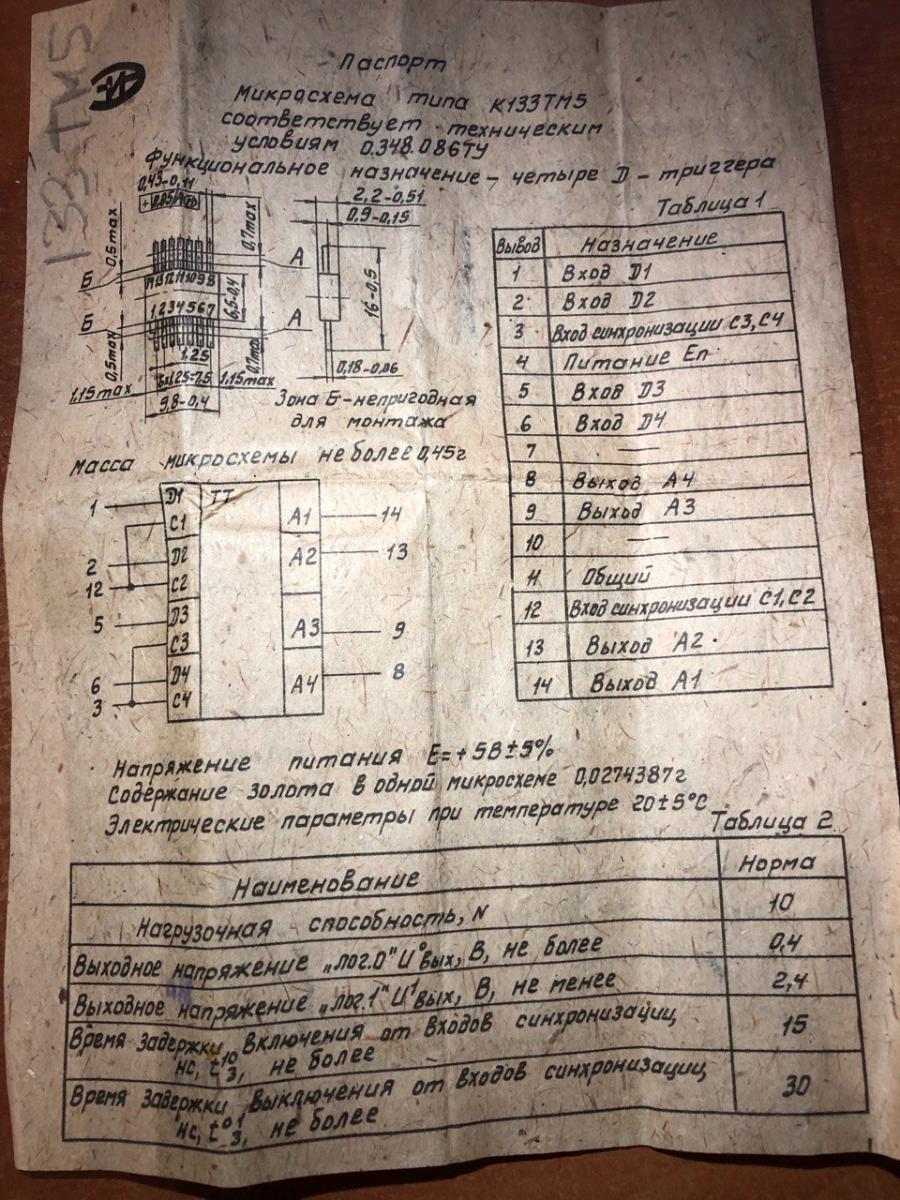 133 ТМ5
Паспорт
Микросхема типа К133ТМ5
соответствует техническим
условиям 0.348.086ТУ
Функциональное назначение – четыре D – триггера
0,43-0,11
2,2-0,51
0,9-0,15
0,5max
0,7max
Б
А
14 13 12 11 10 9 8
6,6-0,4
16-0,5
1 2 3 4 5 6 7
Б
А
0,5max
0,7max
1,25
0,18-0,06
1,15max
6x1,25=7,5
1,15max
9,8-0,4
Зона Б-непригодная
для монтажа
Таблица 1
Вывод Назначение
1 Вход D1
2 Вход D2
3 Вход синхронизации С3,С4
4 Питание Еп
5 Вход D3
6 Вход D4
7 —
8 Выход А4
9 Выход А3
10 —
11 Общий
12 Вход синхронизации С1,С2
13 Выход А2
14 Выход А1
Масса микросхемы не более 0,45г
1 D1 ТТ
С1 А1 14
2 D2 А2 13
12 С2
5 D3
С3 А3 9
6 D4 А4 8
3 С4
Напряжение питания Е=+5В±5%
Содержание золота в одной микросхеме 0,0274387г
Электрические параметры при температуре 20±5°С
Таблица 2
Наименование Норма
Нагрузочная способность, N 10
Выходное напряжение „лог.0" U⁰вых, В, не более 0,4
Выходное напряжение „лог.1" U¹вых, В, не менее 2,4
Время задержки включения от входов синхронизации, 15
нс, t¹⁰з, не более
Время задержки выключения от входов синхронизации, 30
нс, t⁰¹з, не более